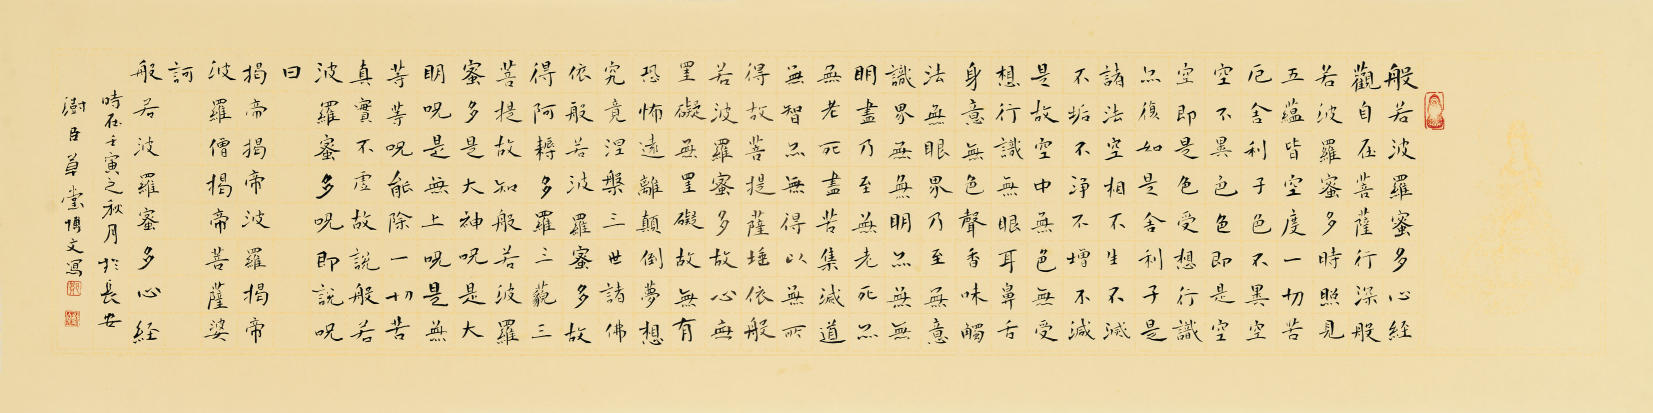 般若波羅蜜多心経
觀自在菩薩行深般
若波羅蜜多時照見
五蘊皆空度一切苦
厄舍利子色不異空
空不異色色即是空
空即是色受想行識
亦復如是舍利子是
諸法空相不生不滅
不垢不淨不增不減
是故空中無色無受
想行識無眼耳鼻舌
身意無色聲香味觸
法無眼界乃至無意
識界無無明亦無無
明盡乃至無老死亦
無老死盡苦集滅道
無智亦無得以無所
得故菩提薩埵依般
若波羅蜜多故心無
罣礙無罣礙故無有
恐怖遠離顛倒夢想
究竟涅槃三世諸佛
依般若波羅蜜多故
得阿耨多羅三藐三
菩提故知般若波羅
蜜多是大神呪是大
明呪是無上呪是無
等等呪能除一切苦
真實不虛故說般若
波羅蜜多呪即說呪
曰
揭帝揭帝波羅揭帝
波羅僧揭帝菩薩婆
訶
般若波羅蜜多心経
時在壬寅之秋月於長安
澍臣草堂博文寫